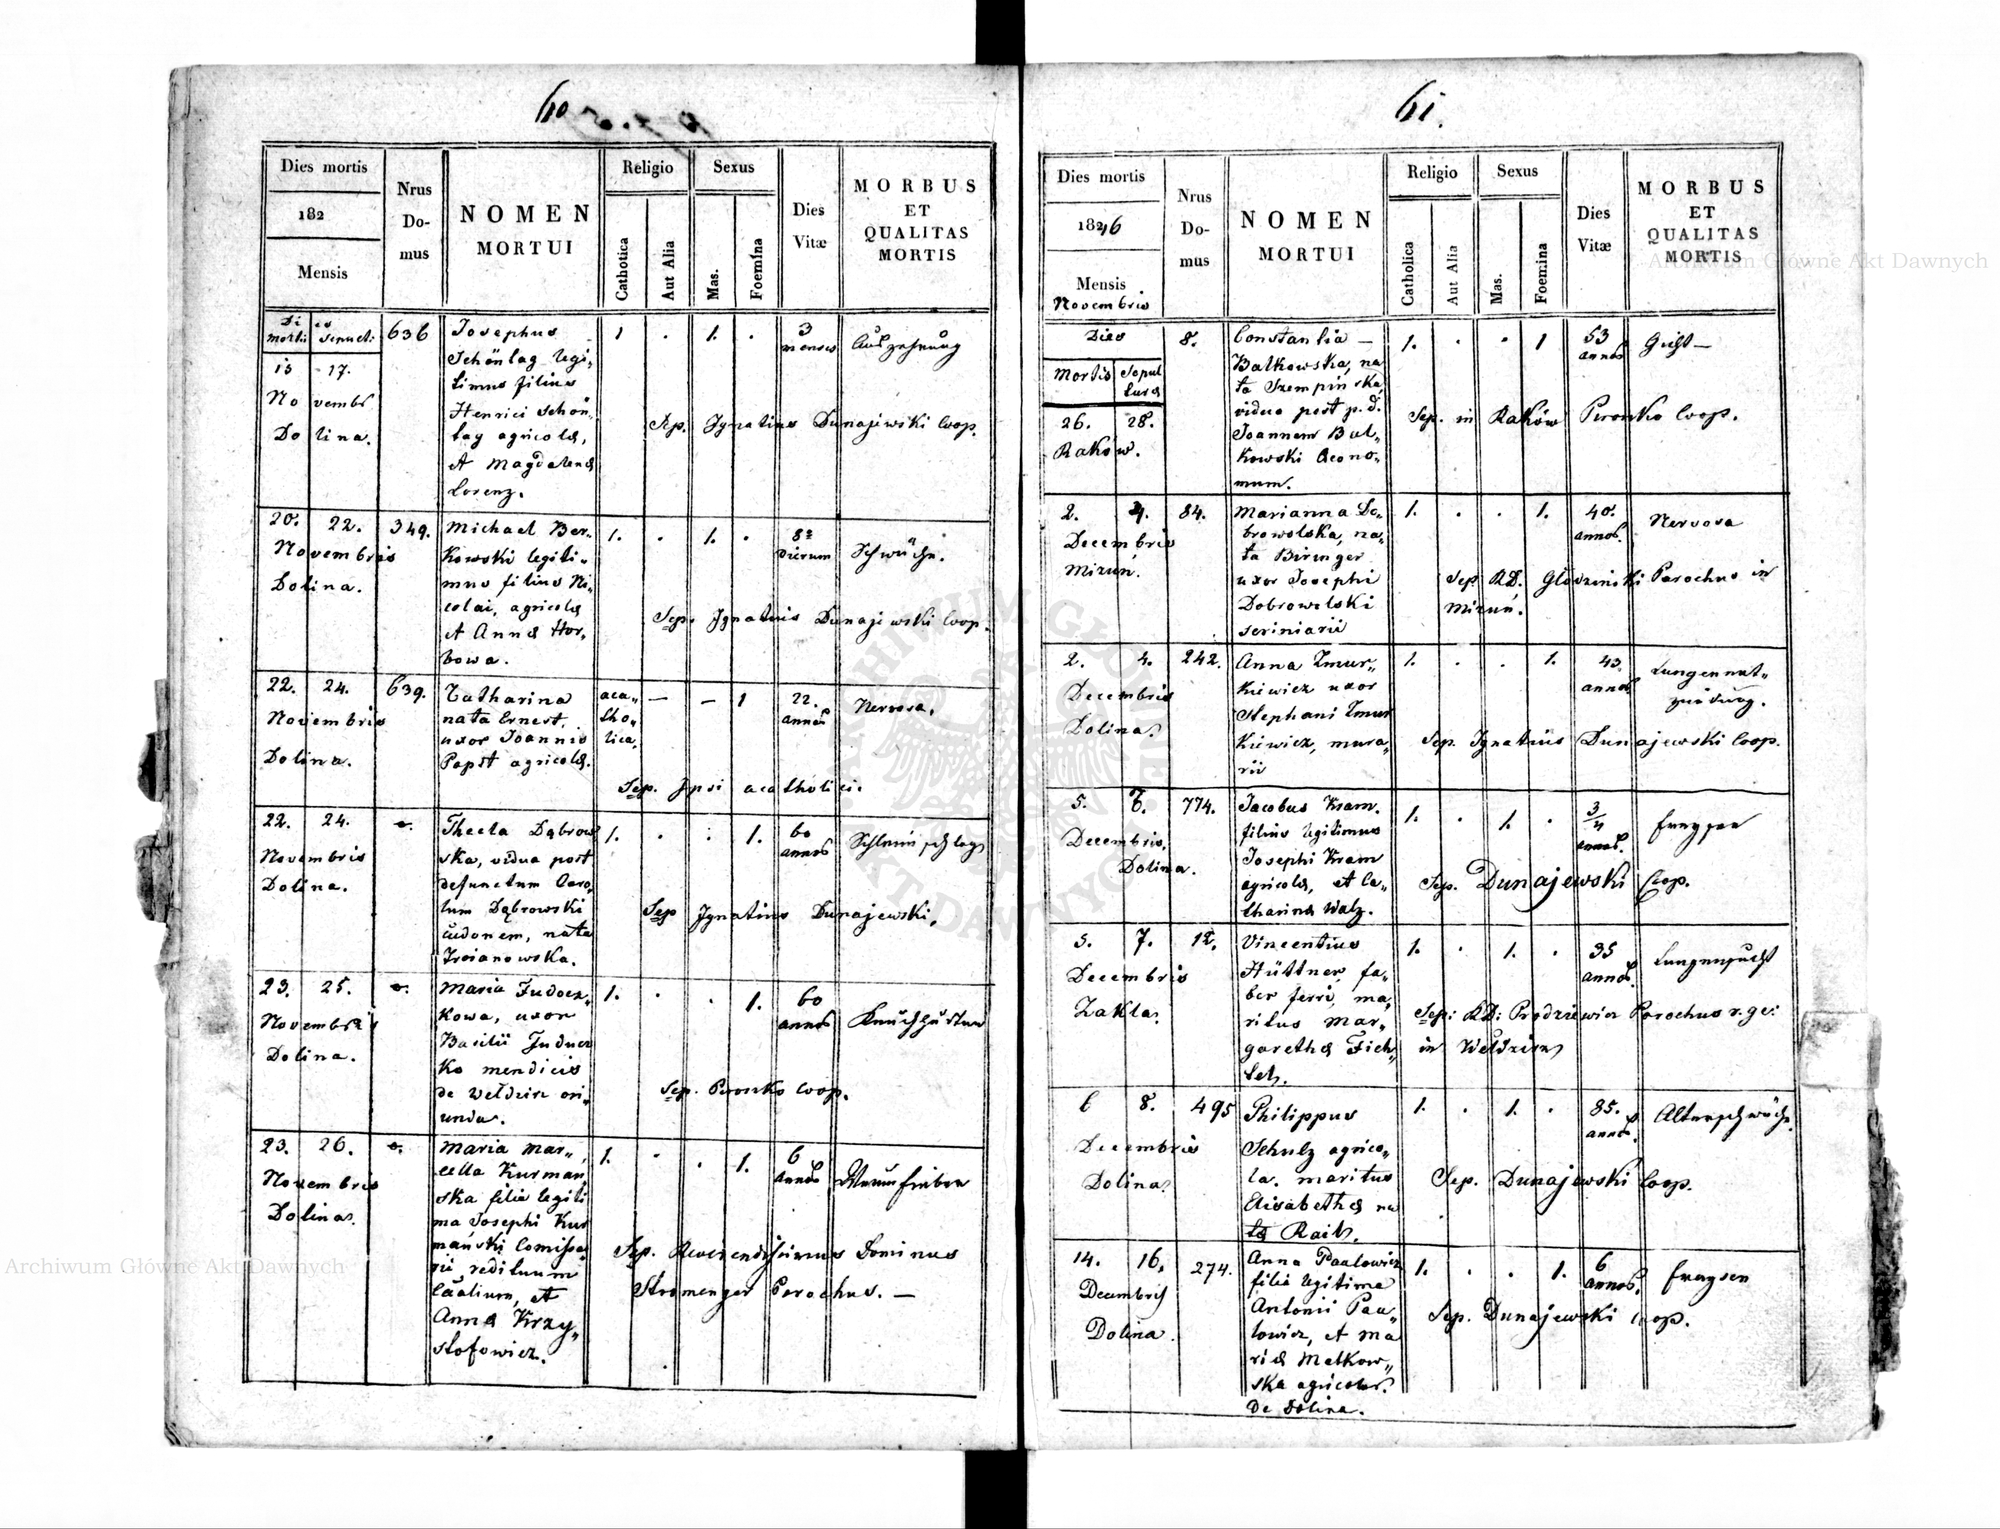 60
Dies mortis
182
Mensis
Nrus Do- mus
NOMEN MORTUI
Religio
Catholica
Aut Alia
Sexus
Mas.
Foemina
Dies Vitæ
MORBUS
ET
QUALITAS
MORTIS
Dies
mortis sepult:
15 17.
Novembr
Dolina.
636
Josephus
Schönlag legi„
timus filius
Henrici Schön„
lag agricolæ,
et Magdalenæ
Lorenz.
1 . 1. .
3
menses
Auszehrung
Sep. Ignatius Dunajewski Coop.
20. 22.
Novembris
Dolina.
349.
Michael Ber„
kowski legiti„
mus filius Ni„
colai, agricolæ
et Annæ Hor„
bowa.
1. . 1. .
8
dierum
Schwäche.
Sep. Ignatius Dunajewski Coop.
22. 24.
Novembris
Dolina.
639.
Catharina
nata Ernest,
uxor Joannis
Papst agricolæ.
aca„
tho„
lica,
— — 1
22.
annos
Nervosa.
Sep. Ipsi acatholici.
22. 24.
Novembris
Dolina.
Thecla Dąbrow
ska, vidua post
defunctum Caro„
lum Dąbrowski
nata
Troianowska.
1. . . 1.
60
annos
Sep Ignatius Dunajewski.
23. 25.
Novembris
Dolina.
Maria Judocz„
kowa, uxor
Basilii Juducz
ko mendicis
de Wełdzirz ori„
unda.
1. . . 1.
60
annos
Sep. Pironko Coop.
23. 26.
Novembris
Dolina.
Maria Mar„
cella Kurman„
ska filia legiti
ma Josephi Kur
mański Comissa„
rii redituum
et
Annæ Krzy„
stofowicz.
1. . . 1.
6
annos
Sep. Reverendissimus Dominus
Stromenger Parochus. —
61.
Dies mortis
1846
Mensis
Novembris
Nrus Do- mus
NOMEN MORTUI
Religio
Catholica
Aut Alia
Sexus
Mas.
Foemina
Dies Vitæ
MORBUS
ET
QUALITAS
MORTIS
Dies
Mortis Sepul
turæ
26. 28.
Rakow.
8.
Constantia —
Balkowska, na„
ta Szempinska,
vidua post p. d.
Joannem Bal„
kowski Æcono„
mum.
1. . . 1
53
annos
Gicht —
Sep. in Raków Pironko Coop.
2. 4.
Decembris
Mizuń.
84.
Marianna Do„
browolska, na„
ta Biringer
uxor Josephi
Dobrowolski
scriniarii
1. . . 1.
40.
annos.
Nervosa
Sep RD. Głodzinski Parochus in
Mizuń.
2. 4.
Decembris
Dolina.
242.
Anna Zmur„
kiewicz uxor
Stephani Zmur
kiewicz, mura„
rii
1. . . 1.
43.
annos
Lungenent„
zündung.
Sep. Ignatius Dunajewski Coop.
5. 7.
Decembris.
Dolina.
774.
Jacobus Kram.
filius legitimus
Josephi Kram
agricolæ, et Ca„
tharinæ Walz.
1. . 1. .
3/4
annos.
Fraysen
Sep. Dunajewski Coop.
5. 7.
Decembris
Zakla.
12.
Vincentius
Hüttner, fa„
ber ferri, ma„
ritus Mar„
garethæ Fich„
tel.
1. . 1. .
35
annos
Lungensucht
Sep: RD: Prodziewicz Parochus r. gr:
in Wełdzirz
6 8.
Decembris
Dolina.
495
Philippus
Schulz agrico„
la. maritus
Elisabethæ na
tæ Raih.
1. . 1. .
85.
annos.
Altersschwäche.
Sep. Dunajewski Coop.
14. 16.
Decembris
Dolina.
274.
Anna Paulowicz
filia legitima
Antonii Pau„
lowicz, et Ma
riæ Malkow„
ska agricolar.
de Dolina.
1. . . 1.
6
annos.
Fraysen
Sep. Dunajewski Coop.
Archiwum Główne Akt Dawnych
Archiwum Główne Akt Dawnych
ARCHIWUM GŁÓWNE AKT DAWNYCH